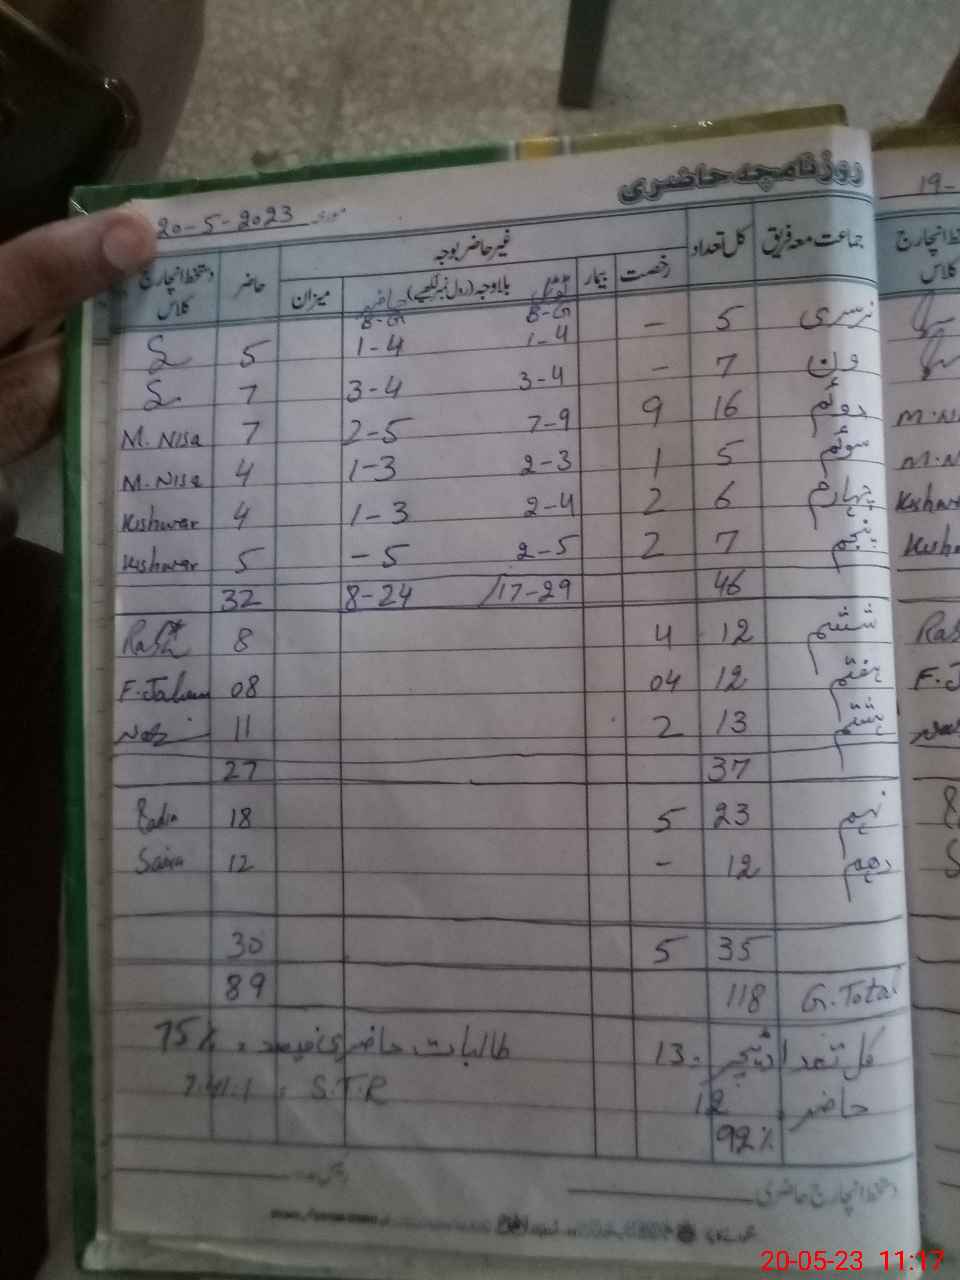 روزنامچہ حاضری
مورخہ 20-5-2023
جماعت معہ فریق کل تعداد غیر حاضر بوجہ حاضر دستخط انچارج کلاس
رخصت بیمار بلاوجہ (رول نمبر لکھیے) میزان
ٹوٹل B-G حاضر B-G
نرسری 5 - 1-4 1-4 5
ون 7 - 3-4 3-4 7
دوئم 16 9 7-9 2-5 7 M. Nisa
سوئم 5 1 2-3 1-3 4 M. Nisa
چہارم 6 2 2-4 1-3 4 Kishwar
پنجم 7 2 2-5 -5 5 Kishwar
46 17-29 8-24 32
ششم 12 4 8
ہفتم 12 04 08 F. Jahan
ہشتم 13 2 11
37 27
نہم 23 5 18
دہم 12 - 12 Saira
35 5 30
G. Total 118 89
کل تعداد ٹیچر 13 طالبات حاضری فیصد 75%
حاضر 12 S.T.R
92%
دستخط انچارج حاضری
19-
دستخط انچارج کلاس
M. Ni
M. N
Kishwa
Kisha
Ras
F. J
20-05-23 11:17